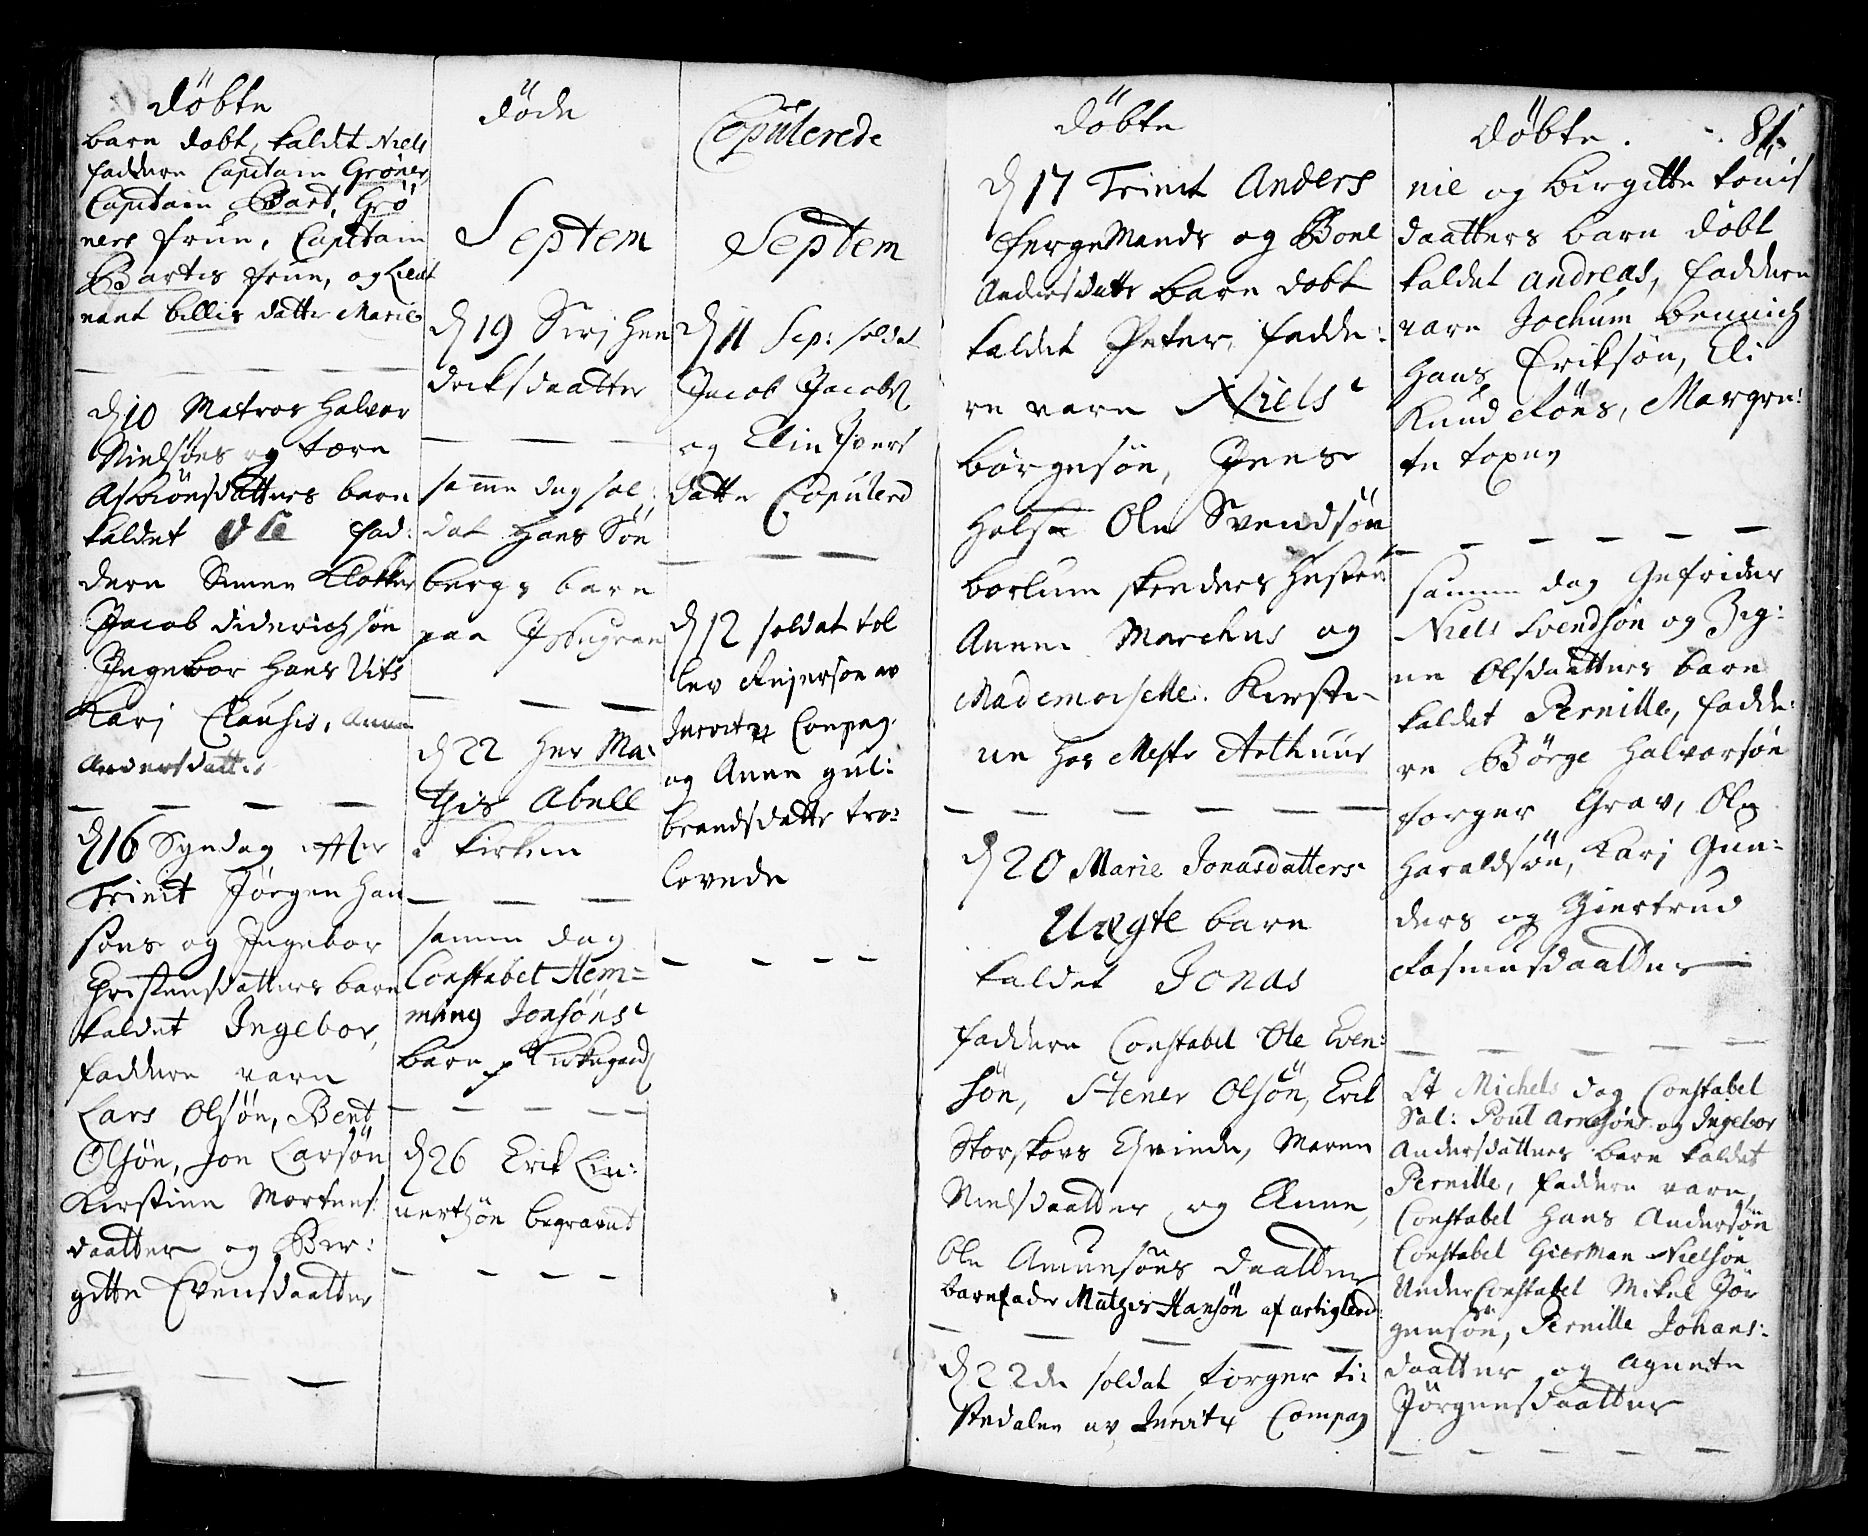 döbte
barn döbt, kaldet Niels
faddere Capitain Gröner,
Capitain Bart, Grö
ners frue, Capitain
Bartes frue, og Lieut
nant billes datter Marie
d 10 Matros Halvor
Nielsöns og
Asbiönsdatters barn
kaldet Ole fad:
dere Simen Klokker
Jacob Diderichsön
Ingebor Hans Nits
Karj Clauses, Anne
Andersdatter
d 16 Syndag effter
Trinit Jörgen Han
söns og Ingebor
Christensdatters barn
kaldet Ingebor,
faddere vare
Lars Olsön, Bent
Olsön, Jon Larsön
Kirstine Mortens:
daatter og Bir:
gitte Evensdaatter
döde
Septem
d 19 Sirj Hen
dricksdaatter
samme dag sol:
dat Hans Sön
bergs barn
paa
d 22 Her Ma:
this Abell
i kirken
samme dag
Constabel Hem=
ming Jonsöns
barn p Kirkegaard
d 26 Erik Lin:
nertsön begravet
Copulerede
Septem
d 11 Sep: soldat
Jacob Jacobs
og Elin Ivers
datter Copulerd
d 12 soldat tol
lev Rejerson av
Compag.
og Anne gul:
brandsdatter tro:
lovede
döbte
d 17 Trinit Anders
fergeMands og Boel
Andersdatter barn döbt
kaldet Peter, fadde:
re vare Niels
börgesön, Jens
Holst Ole Svendsön
borlum
Anne Marchus og
Mademoiselle Kirsti-
ne hos Mestr Arthuur
d 20 Marie Jonasdatters
Uægte barn
kaldet Jonas
faddere Constabel Ole Even:
sön, Stener Olsön, Erik
Storskovs Qvinde, Maren
Nielsdaatter og Anne,
Ole Amunsöns daatter
barnefader Mathis Hansön af artiglerd:
d 22de soldat torger ti:
stedalen av Compag
döbte. 81.
nie og birgitte tönis
daatters barn döbt
kaldet Andreas, faddere
vare Jochum bennich
Hans Eriksön, Eli
Knud Röns, Margre:
te
samme dag Gefrider
Niels Svendsön og Zig:
ne Olsdaatters barn
kaldet Pernille, fadde:
re Börge Halvorsön
torger Grav, Ole
Haraldsön, Karj Gun:
ders og Giertrud
Rasmusdaatter
St Michels dag Constabel
Sal: Poul Arnesöns og Ingebor
Andersdatters barn kaldet
Pernille, faddere vare,
Constabel Hans Andersön
Constabel Gierman Nielsön
UnderConstabel Mikel Jör
gensön, Pernille Johans:
daatter og Agnete
Jörgensdaatter